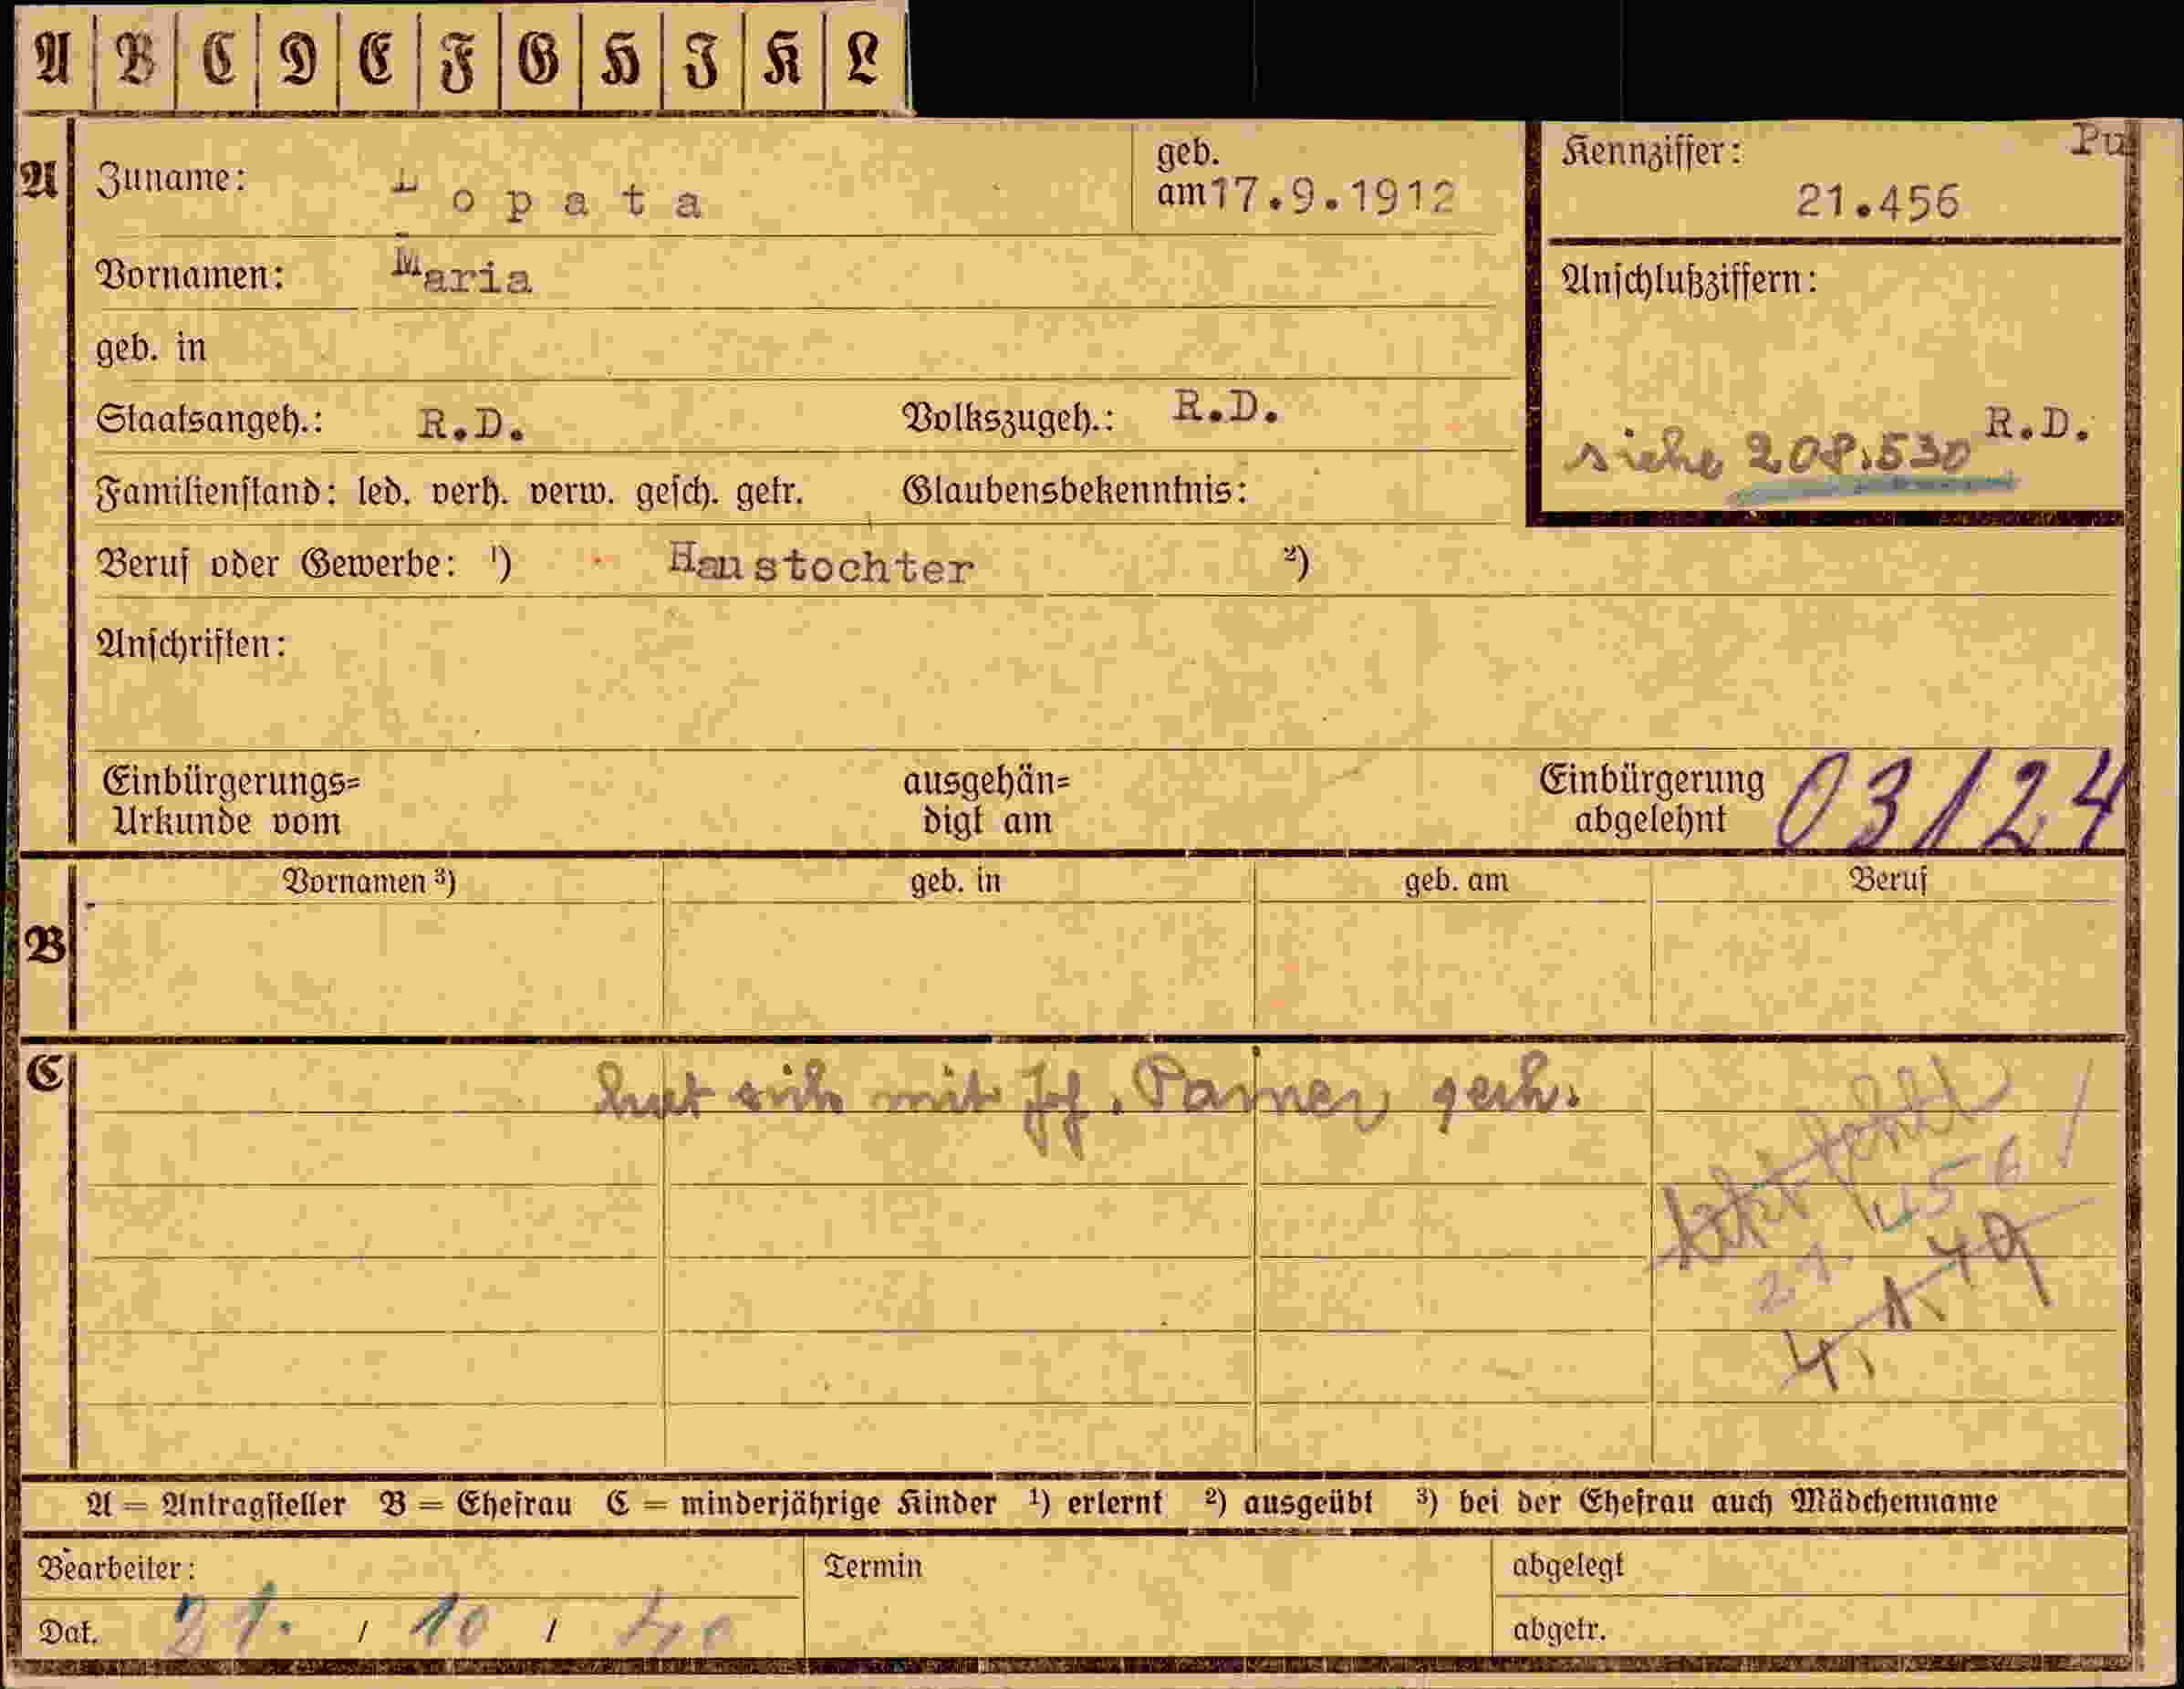 A B C D E F G H I K L
A
Zuname: Lopata
geb. am 17.9.1912
Kennziffer: Pu
21.456
Vornamen: Maria
Anschlußziffern:
geb. in
Staatsangeh.: R.D. Volkszugeh.: R.D.
R.D.
siehe 208.530
Familienstand: led. verh. verw. gesch. getr. Glaubensbekenntnis:
Beruf oder Gewerbe: ¹) Haustochter ²)
Anschriften:
Einbürgerungs=
Urkunde vom
ausgehän=
digt am
Einbürgerung
abgelehnt
03124
B
Vornamen ³) geb. in geb. am Beruf
C
hat sich mit Jos. gesch.
fehlt
21.456
4.1.49
A = Antragsteller B = Ehefrau C = minderjährige Kinder ¹) erlernt ²) ausgeübt ³) bei der Ehefrau auch Mädchenname
Bearbeiter:
Termin
abgelegt
Dat. 21. / 10 / 40
abgetr.